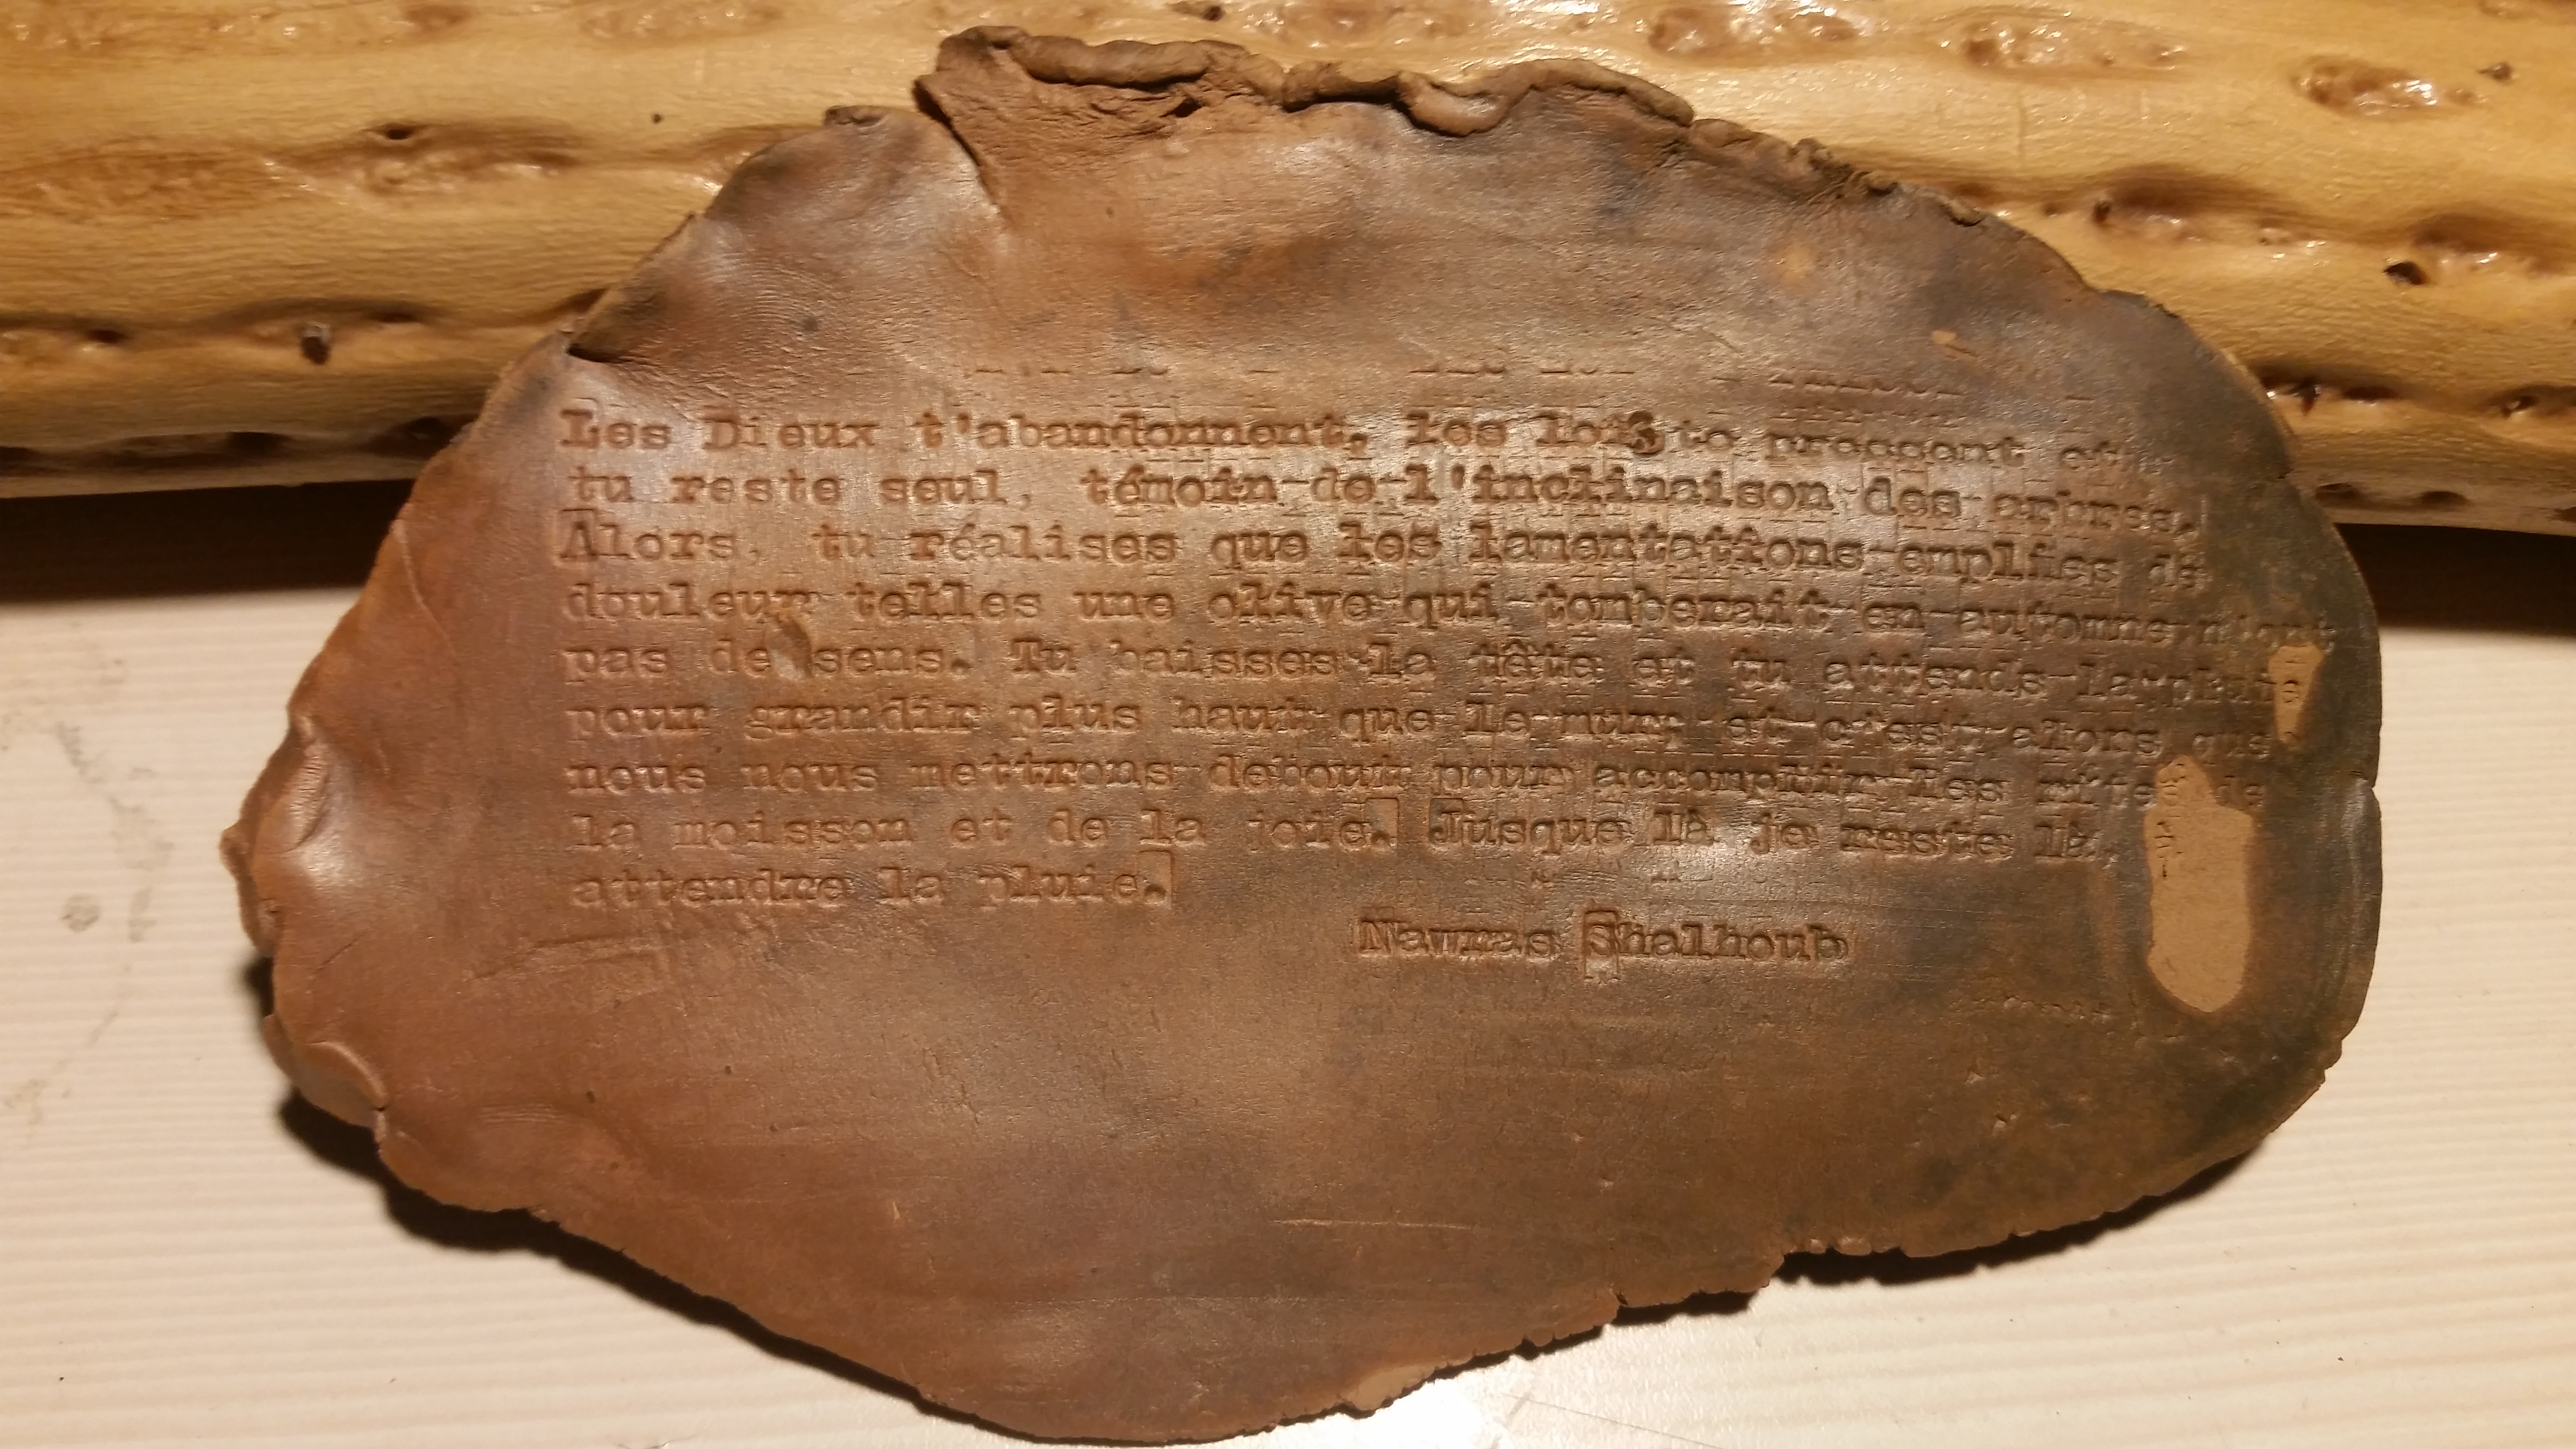 Les Dieux t'abandonnent, les lois te pressent et
tu reste seul, témoin de l'inclinaison des arbres.
Alors, tu réalises que les lamentations emplies de
douleur telles une olive qui tomberait en automne n'ont
pas de sens. Tu baisses la tête et tu attends la pluie
pour grandir plus haut que le mur, et c'est alors que
nous nous mettrons debout pour accomplir les rites de
la moisson et de la joie. Jusque là je reste là,
attendre la pluie.
Nawras Shalhoub